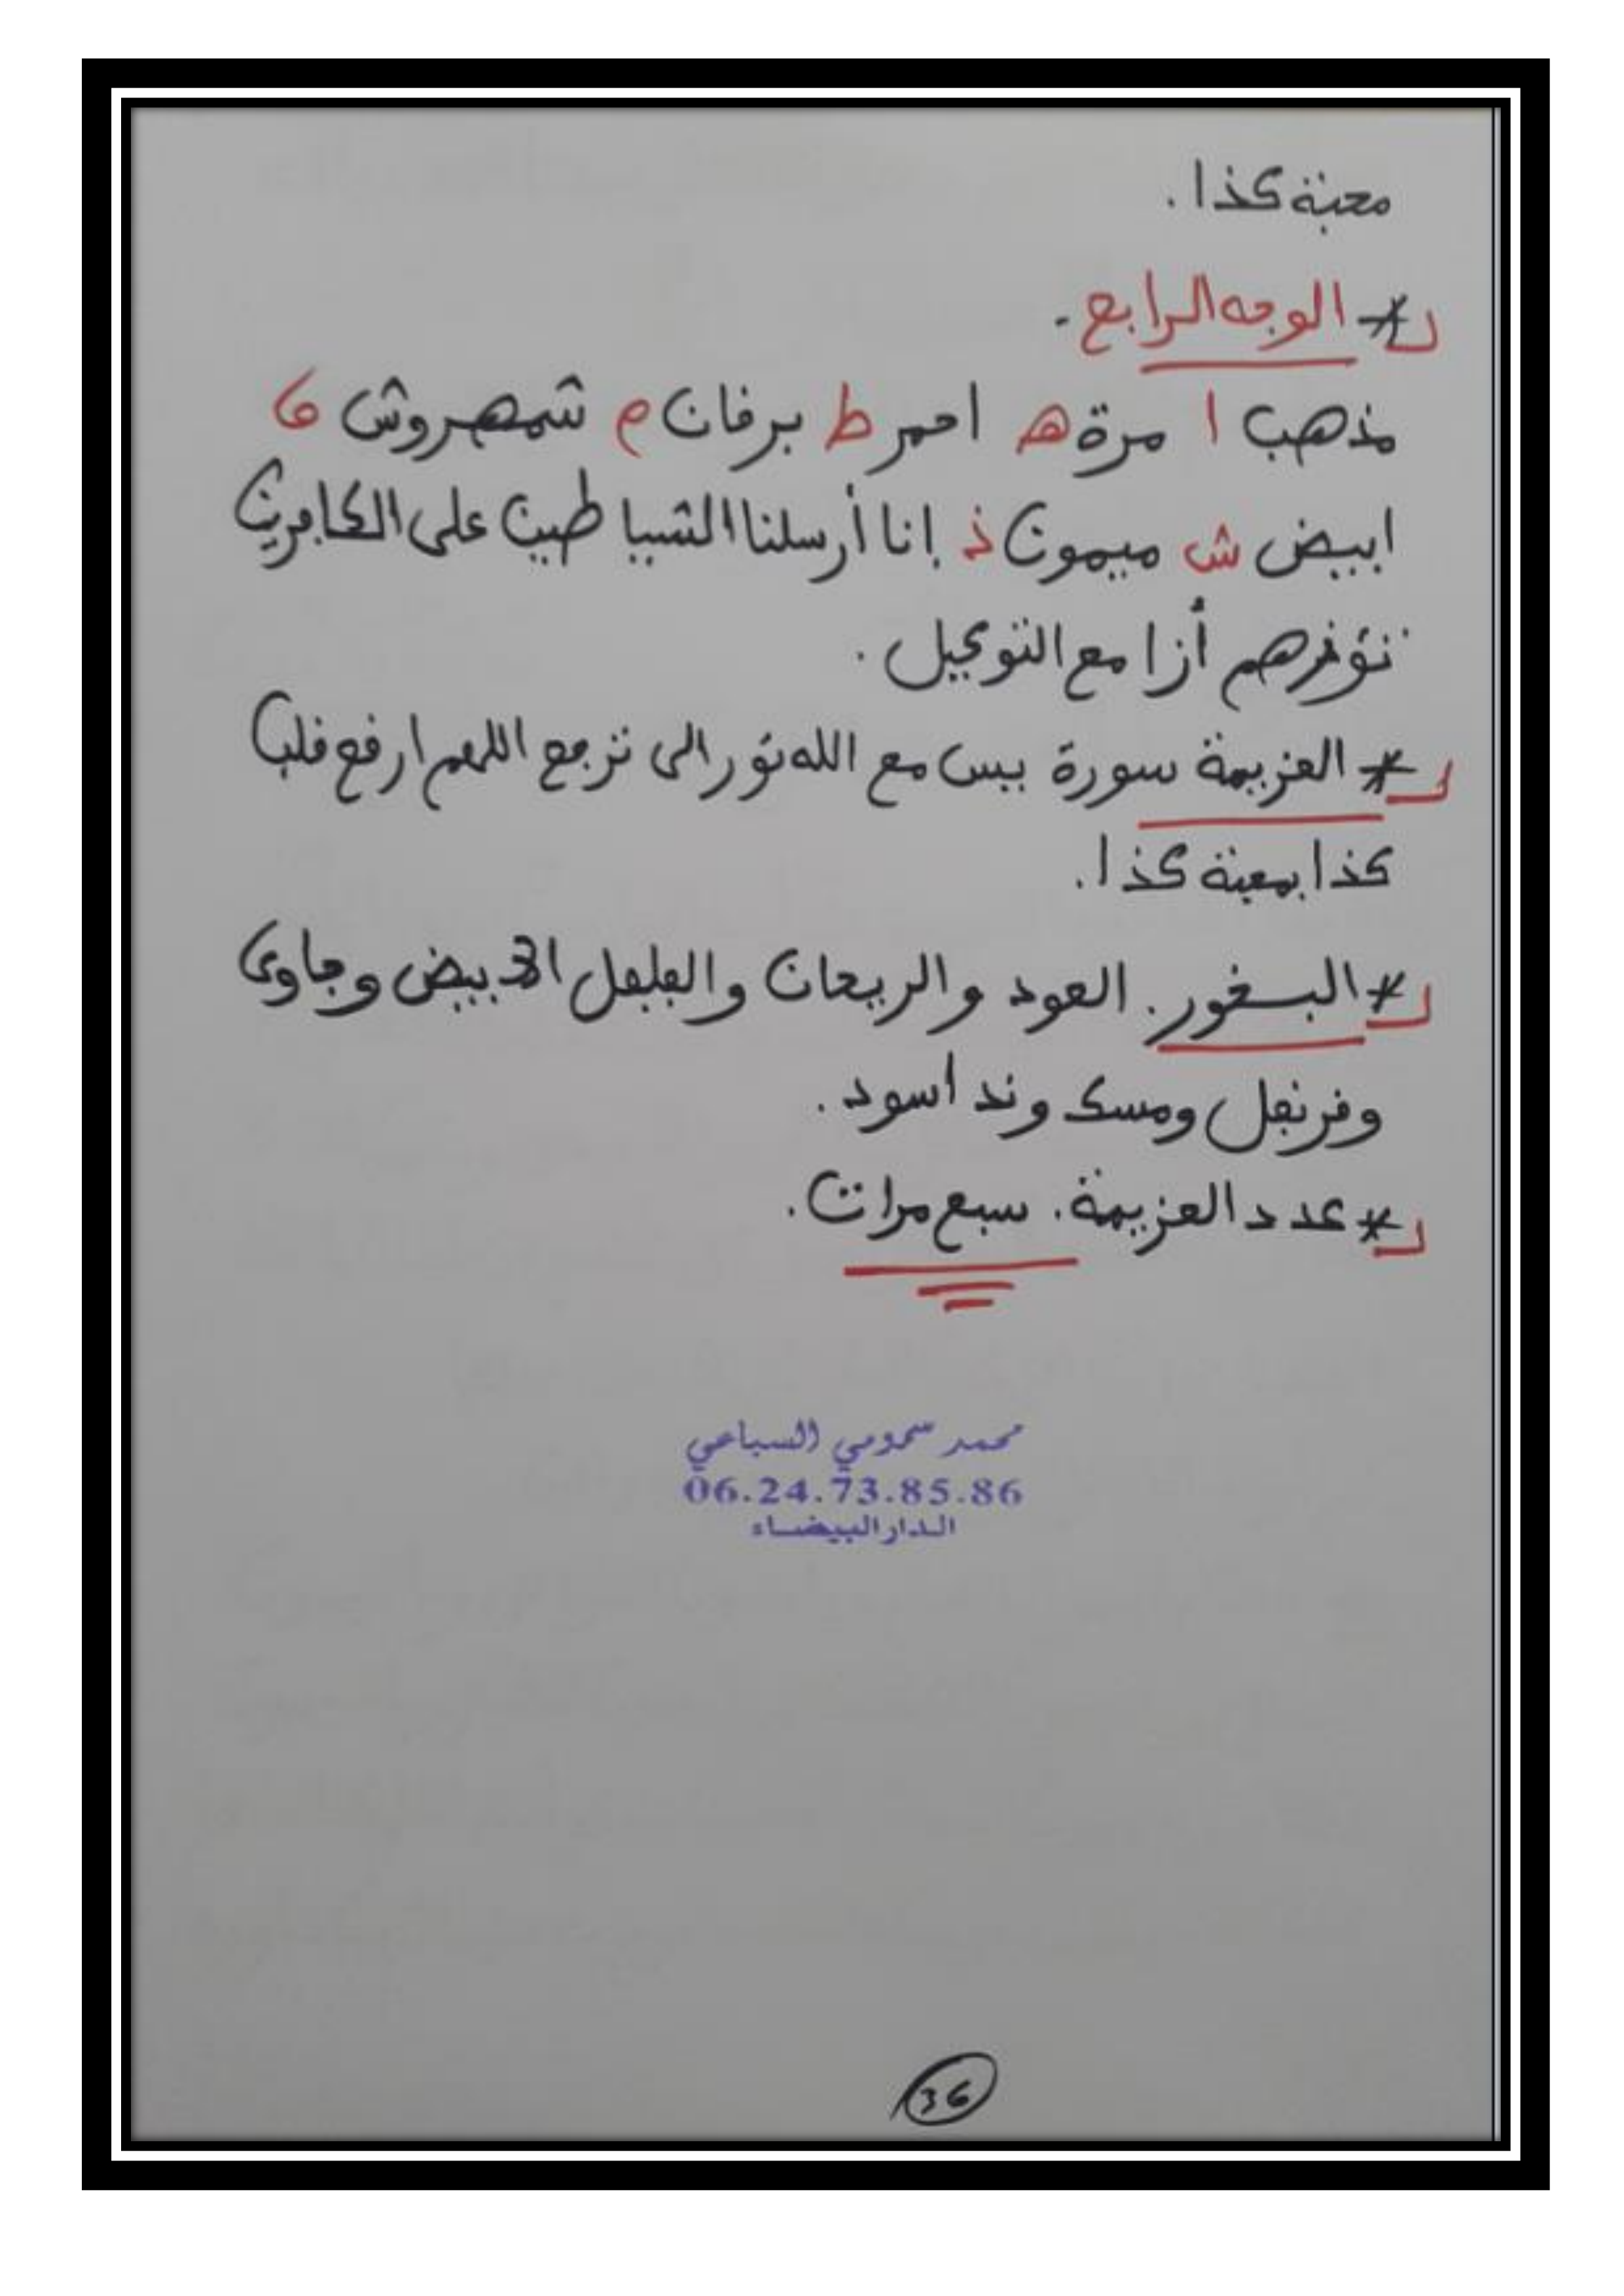 محبة كذا.
* الوجه الرابع.
مذهب ا مرة ه احمر ط برقان م شمهروش
ابيض ش ميمون ذ إنا أرسلنا الشياطين على الكافرين
تؤزهم أزا مع التوكيل.
* العزيمة سورة يس مع الله نور الى ترجع اللهم ارفع قلب
كذا بمحبة كذا.
* البخور. العود والريحان والفلفل الابيض وجاوى
وقرنفل ومسك وند اسود.
* عدد العزيمة. سبع مرات.
محمد سمومي السباعي
06.24.73.85.86
الدار البيضاء
36